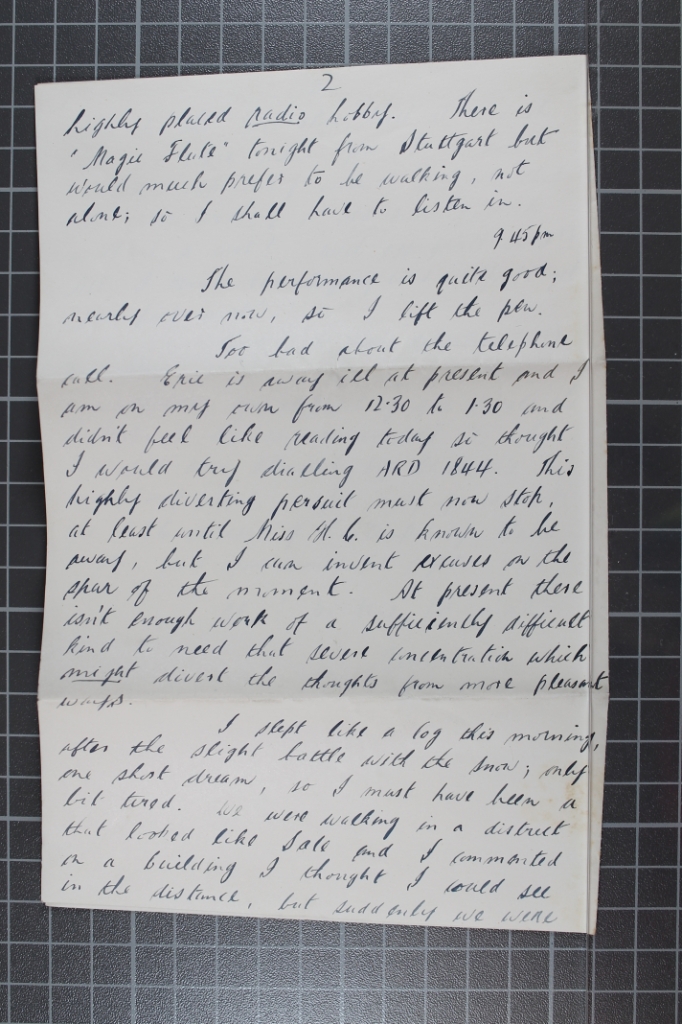 2
highly placed radio hobby. There is
"Magic Flute" tonight from Stuttgart but
would much prefer to be walking, not
alone; so I shall have to listen in.
9.45pm
The performance is quite good;
nearly over now, so I lift the pen.
Too bad about the telephone
call. Eric is away ill at present and I
am on my own from 12.30 to 1.30 and
didn't feel like reading today so thought
I would try dialling ARD 1844. This
highly diverting persuit must now stop,
at least until Miss H.C. is known to be
away, but I can invent excuses on the
spur of the moment. At present there
isn't enough work of a sufficiently difficult
kind to need that severe concentration which
might divert the thoughts from more pleasant
ways.
I slept like a log this morning,
after the slight battle with the snow; only
one short dream, so I must have been a
bit tired. We were walking in a district
that looked like Sale and I commented
on a building I thought I could see
in the distance, but suddenly we were